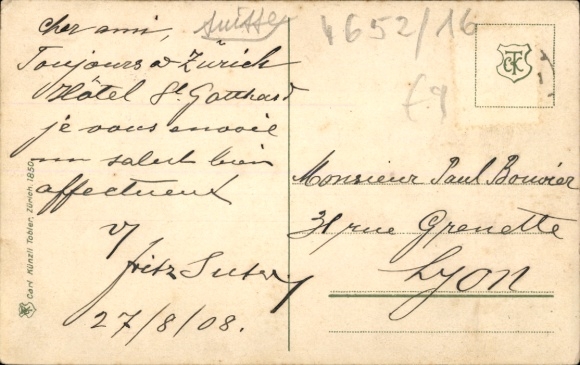 cher ami,
Suisse
4652/16
Toujours à Zürich
Hôtel St. Gotthard
je vous envoie
un salut bien
affectueux
Fritz Suter
27/8/08.
Monsieur Paul Bouvier
31 rue Grenette
Lyon
Carl Künzli Tobler, Zürich. 1850
CTK